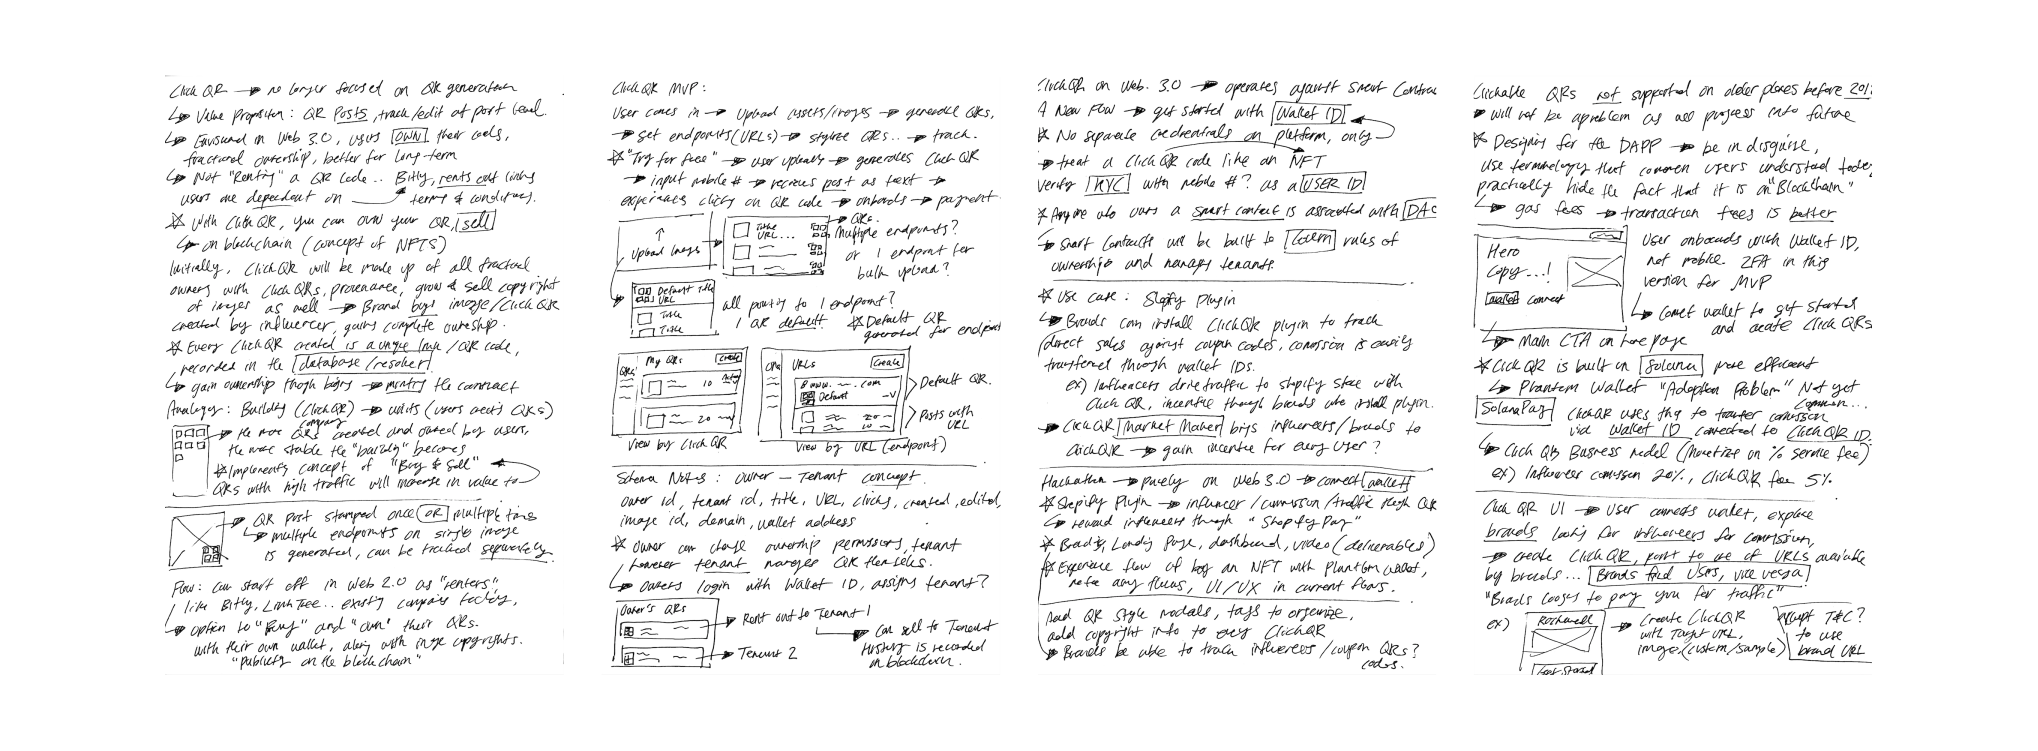 Click QR → no longer focused on QR generation
↳ Value Proposition: QR Posts, track/edit at post level.
↳ Envisioned in Web 3.0, users OWN their codes,
fractional ownership, better for long term
↳ Not "Renting" a QR code.. Bitly, rents out links
users are dependent on terms & conditions.
☆ With ClickQR, you can own your QR, sell
↳ on blockchain (concept of NFTS)
Initially, ClickQR will be made up of all fractional
owners with ClickQRs, provenance, grow & sell copyright
of images as well → Brand buys image/Click QR
created by influencer, gains complete ownership.
☆ Every Click QR created is a unique image/QR code,
recorded in the database/resolver
↳ gain ownership though buying → minting the contract
Analogy: Building (ClickQR) → units (users access QRs)
company
→ the more QRs created and owned by users,
the more stable the "building" becomes
☆ Implements concept of "Buy & Sell"
QRs with high traffic will increase in value to
→ QR post stamped once OR multiple times
↳ multiple endpoints on single image
is generated, can be tracked separately
Flow: Can start off in Web 2.0 as "renters",
like Bitly, LinkTree... existing companies today,
→ option to "Buy" and "own" their QRs.
with their own wallet, along with image copyrights.
"publicity on the blockchain"
Click QR MVP:
User comes in → Upload assets/images → generate QRs,
→ set endpoints (URLs) → stylize QRs.. → track.
☆ "Try for free" → user uploads → generates Click QR
→ input mobile # → receives post as text →
experiences clicks on QR code → onboards → payment
Upload Images
Title
URL...
→ QRs.
Multiple endpoints?
or 1 endpoint for
bulk upload?
Default Title
URL
Title
Title
all pointing to 1 endpoint?
1 QR default.
☆ Default QR
generated for endpoint
QRs
My QRs
Create
10
20
View by Click QR
URLs
Create
www. ~. com
Default
20
10
Default QR.
Posts with
URL
View by URL (endpoint)
Schema Notes: Owner — Tenant concept
owner id, tenant id, title, URL, clicks, created, edited,
image id, domain, wallet address
☆ Owner can change ownership permissions, tenant
however tenant manages QR themselves.
↳ Owners login with Wallet ID, assigns tenant?
Owner's QRs
→ Rent out to Tenant 1
→ Can sell to Tenant
History is recorded
on blockchain.
→ Tenant 2
ClickQR on Web. 3.0 → operates against Smart Contrac
A New Flow → get started with Wallet ID
☆ No separate credentials on platform, only
→ treat a ClickQR code like an NFT
Verify KYC with mobile #? as a USER ID
☆ Anyone who owns a smart contract is associated with DAO
→ Smart Contracts will be built to Govern rules of
ownership and manage tenants.
☆ Use case: Shopify Plugin
↳ Brands can install ClickQR plugin to track
direct sales against coupon codes, comission is easily
transferred through wallet IDs.
ex) Influencers drive traffic to shopify store with
Click QR, incentive though brands who install plugin.
→ ClickQR Market Maker brings influencers/brands to
ClickQR → gain incentive for every user?
Hackathon → purely on Web 3.0 → connect wallet
☆ Shopify Plugin → influencer/commission/traffic through QR
↳ reward influencers though "Shopify Pay"
☆ Brand, Landing Page, dashboard, video (deliverables)
☆ Experience flow of buying an NFT with Phantom Wallet,
note any flaws, UI/UX in current flows.
Add QR style modals, tags to organize,
add copyright info to every ClickQR
→ Brands be able to track influencers/coupon QRs?
codes.
Clickable QRs not supported on older phones before 201
→ will not be a problem as all progress into future
☆ Designing for the DAPP → be in disguise,
use terminology that common users understand today,
practically hide the fact that it is on "Blockchain"
↳ gas fees → transaction fees is better
Hero
Copy...!
Wallet connect
User onboards with Wallet ID,
not mobile 2FA in this
version for MVP
↳ Connect wallet to get started
and create Click QRs
↳ Main CTA on home page
☆ Click QR is built on Solana more efficient
↳ Phantom Wallet "Adoption Problem" Not yet
Common...
SolanaPay
ClickQR uses this to transfer comission
via Wallet ID connected to Click QR ID.
↳ Click QRs Business Model (Monetize on % service fee)
ex) Influencer comission 20%, ClickQR fee 5%
Click QR UI → User connects wallet, explore
brands looking for influencers for commission,
→ create Click QR, point to one of URLs available
by brands... Brands find Users, vice versa
"Brands looking to pay you for traffic"
ex)
→ Create ClickQR
with Target URL,
image (custom/sample)
accept T&C?
to use
brand URL
Get Started